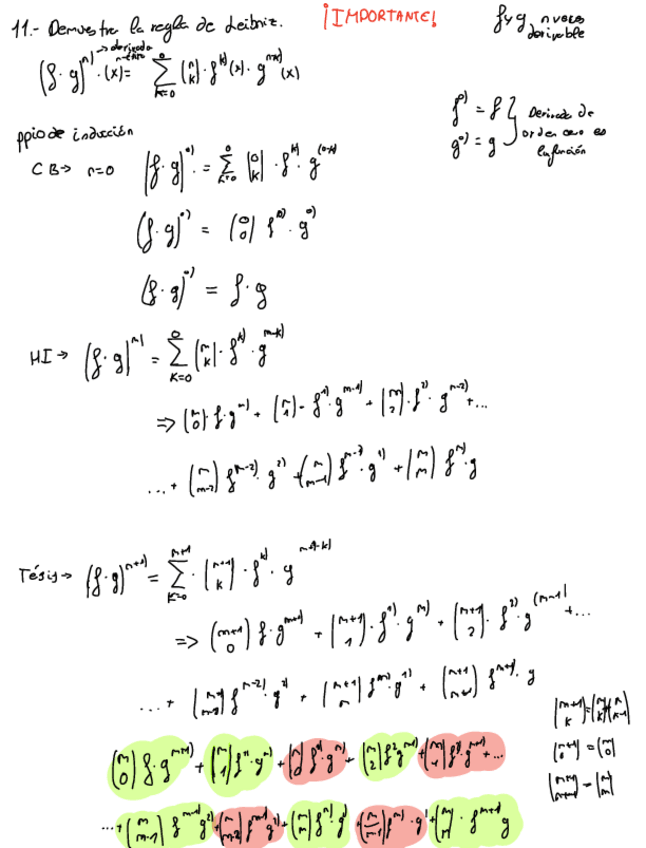 11.- Demuestra la regla de Leibniz.
¡IMPORTANTE!
f y g n veces
derivable
→ derivada
n-ésima
(f·g)^{n)}·(x) = ∑_{k=0}^{0} (n k)·f^{k)}(x)·g^{n-k)}(x)
f^{0)} = f
g^{0)} = g
Derivada de
orden cero es
la función
ppio de inducción
CB→ n=0 (f·g)^{0)} = ∑_{k=0}^{0} (0 k)·f^{k)}·g^{(0-k)}
(f·g)^{0)} = (0 0) f^{0)}·g^{0)}
(f·g)^{0)} = f·g
HI→ (f·g)^{n)} = ∑_{k=0}^{0} (n k)·f^{k)}·g^{n-k)}
⇒ (n 0)·f·g^{n)} + (n 1)·f^{1)}·g^{n-1)} + (n 2)·f^{2)}·g^{n-2)} + ...
...+ (n n-2) f^{n-2)}·g^{2)} + (n n-1) f^{n-1)}·g^{1)} + (n n) f^{n)}·g
Tésis→ (f·g)^{n+1)} = ∑_{k=0}^{n+1}·(n+1 k)·f^{k)}·g^{n+1-k)}
⇒ (n+1 0) f·g^{n+1)} + (n+1 1)·f^{1)}·g^{n)} + (n+1 2)·f^{2)}·g^{(n-1)} + ...
...+ f^{n-2)}·g^{2)} + (n+1 n) f^{n)}·g^{1)} + (n+1 n+1) f^{n+1)}·g
(n+1 k)=(n k)+(n k-1)
(n+1 0) = (n 0)
(n+1 n+1) = (n n)
(n 0) f·g^{n+1)} + (n 1) f^{1)}·g^{n)} + (n 0) f^{1)}·g^{n)} + (n 2) f^{2)} g^{n-1)} + (n 1) f^{2)} g^{n-1)} + ...
...+ (n n-1) f^{n-1)} g^{2)} + (n n-2) f^{n-1)} g^{2)} + (n n) f^{n)}·g^{1)} + (n n-1) f^{n)}·g^{1)} + (n n)·f^{n+1)} g